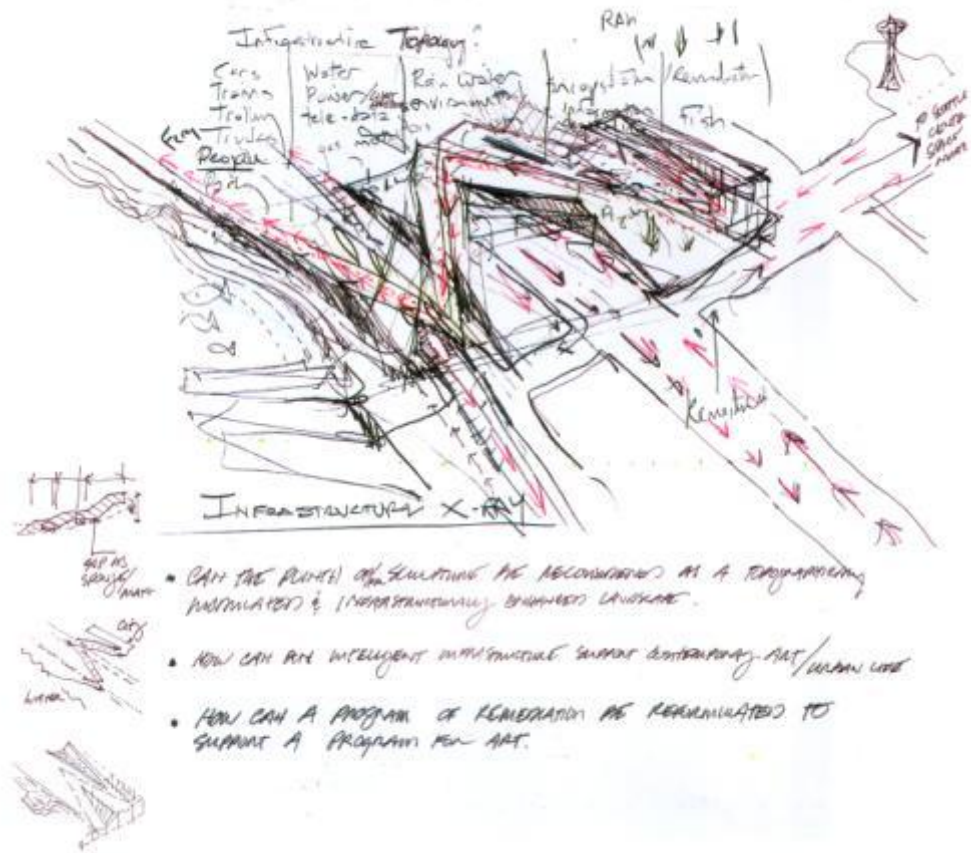 RAIN
Infrastructure Topology?
Cars
Trains
Trolleys
Trucks
People
Water
Power/
tele-data
gas
Rain Water
environmental
Remediation
Fish
TO SEATTLE
CENTER
SPACE
NEEDLE
INFRASTRUCTURAL X-RAY
CITY
WATER
• CAN THE PLINTH OF SCULPTURE BE RECONSIDERED AS A TOPOGRAPHICALLY
MODULATED & INFRASTRUCTURALLY ENHANCED LANDSCAPE.
• HOW CAN AN INTELLIGENT INFRASTRUCTURE SUPPORT CONTEMPORARY ART/URBAN LIFE
• HOW CAN A PROGRAM OF REMEDIATION BE REFORMULATED TO
SUPPORT A PROGRAM FOR ART.